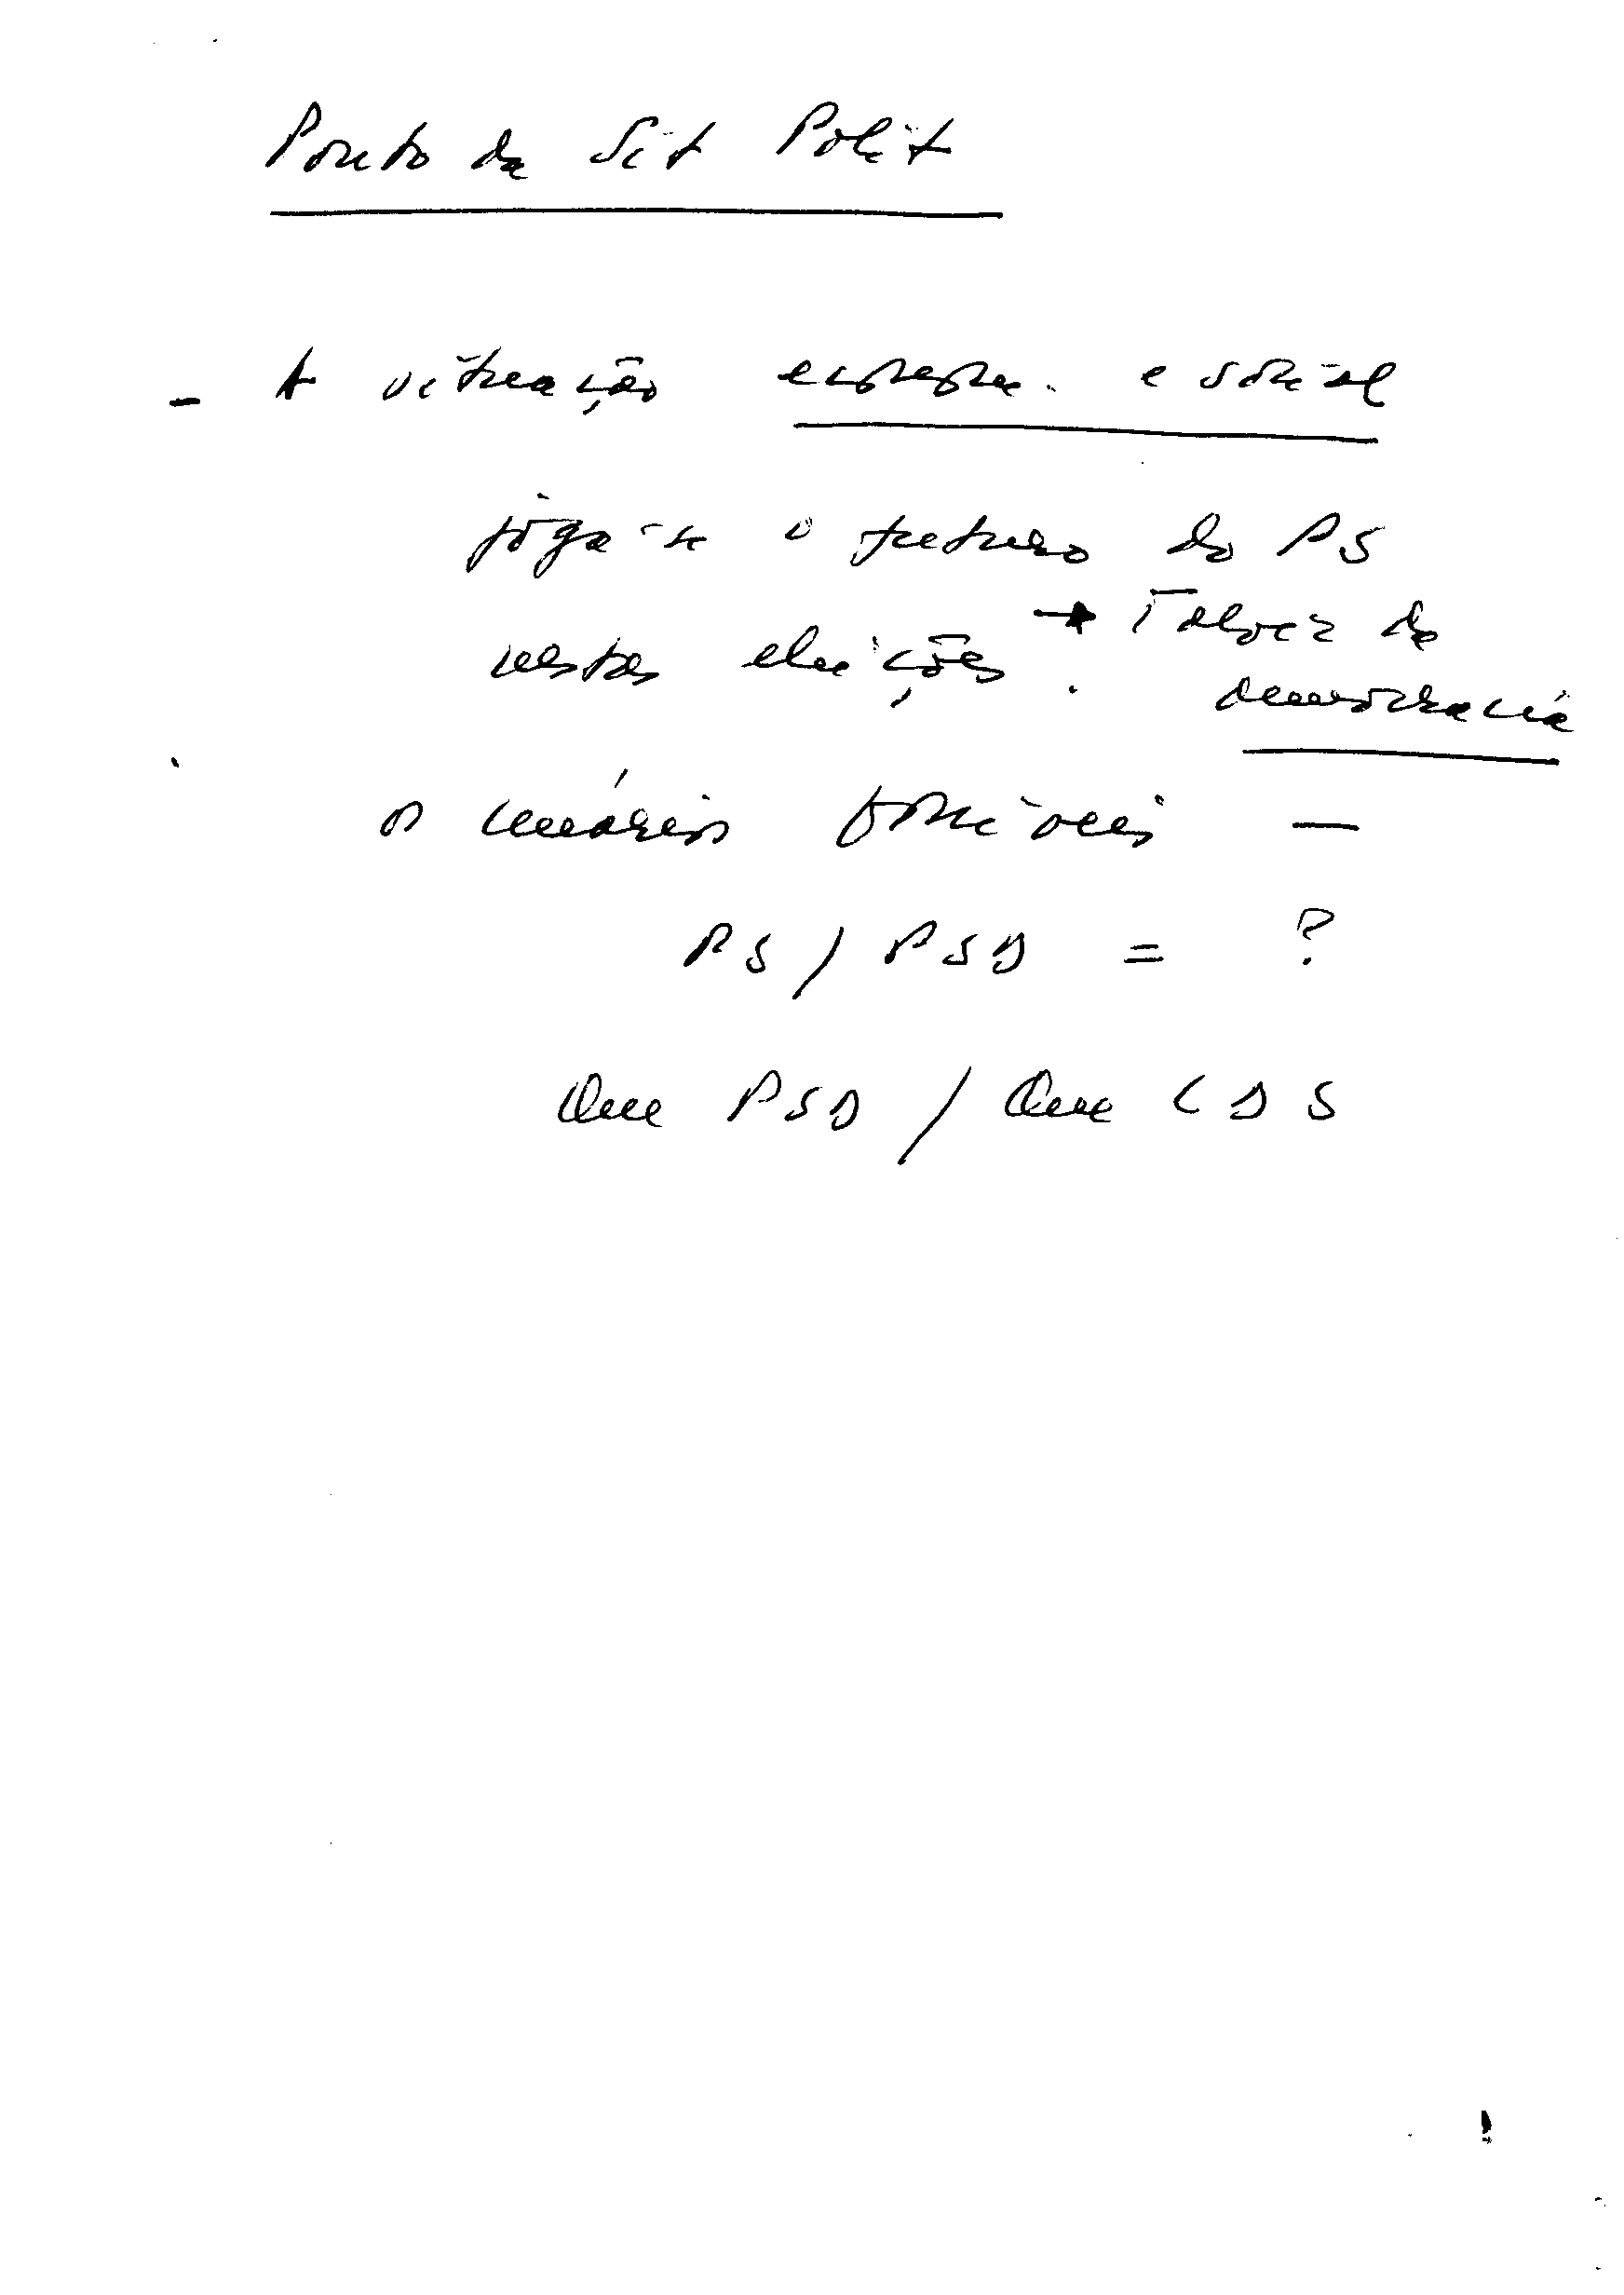 Ponto da Sit Polit
- A situação econom. e social
joga-se o futuro do PS
nestas eleições. → Talvez da
democracia
os cenários possíveis —
PS / PSD = ?
Que PSD / Que CDS